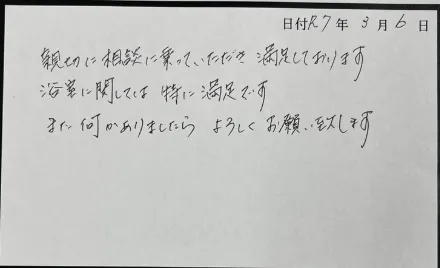 日付R7年3月6日
親切に相談に乗っていただき 満足しております
浴室に関しては 特に満足です
また何かありましたら よろしくお願い致します